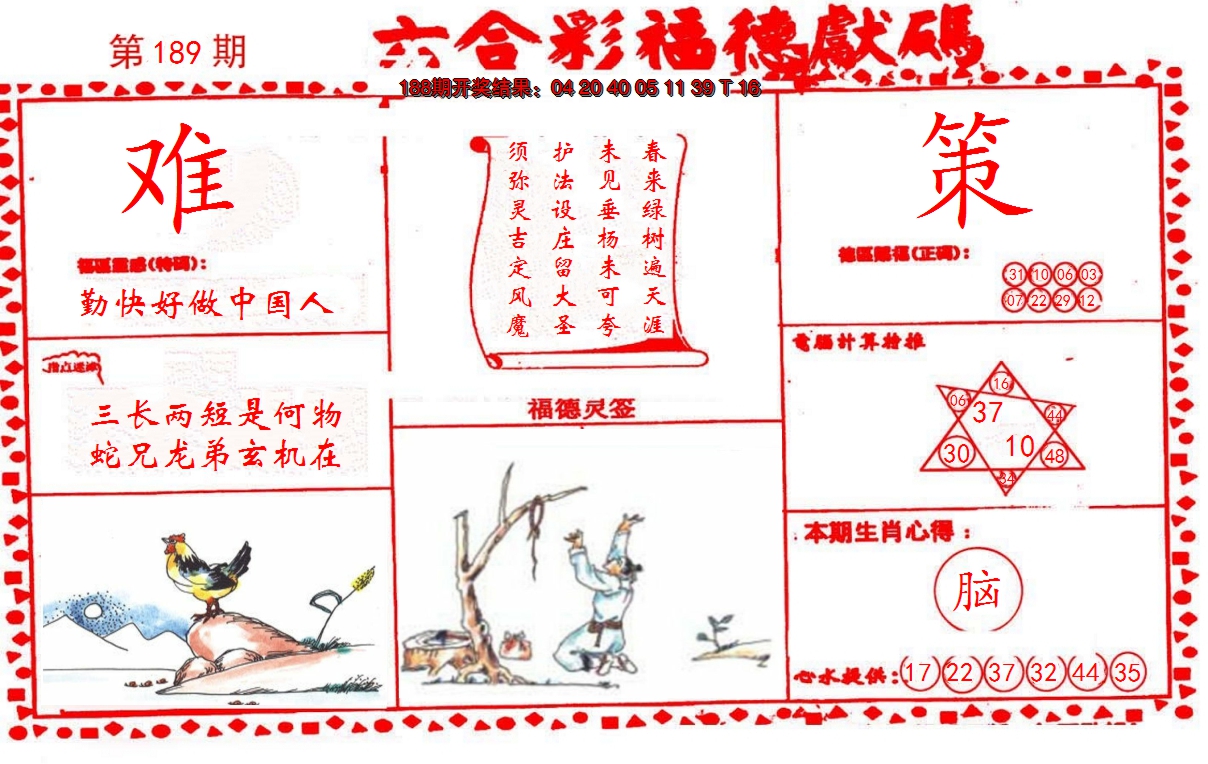 第189期
六合彩福德獻碼
188期开奖结果：04 20 40 05 11 39 T 16
难
福區靈感(特碼)：
勤快好做中国人
指点迷津
三长两短是何物
蛇兄龙弟玄机在
春来绿树遍天涯
未见垂杨未可夸
护法设庄留大圣
须弥灵吉定风魔
福德灵签
策
德區賜福(正碼)：
31 10 06 03
07 22 29 12
電腦計算轮推
16
06 37 44
30 10 48
34
本期生肖心得：
脑
心水提供：17 22 37 32 44 35